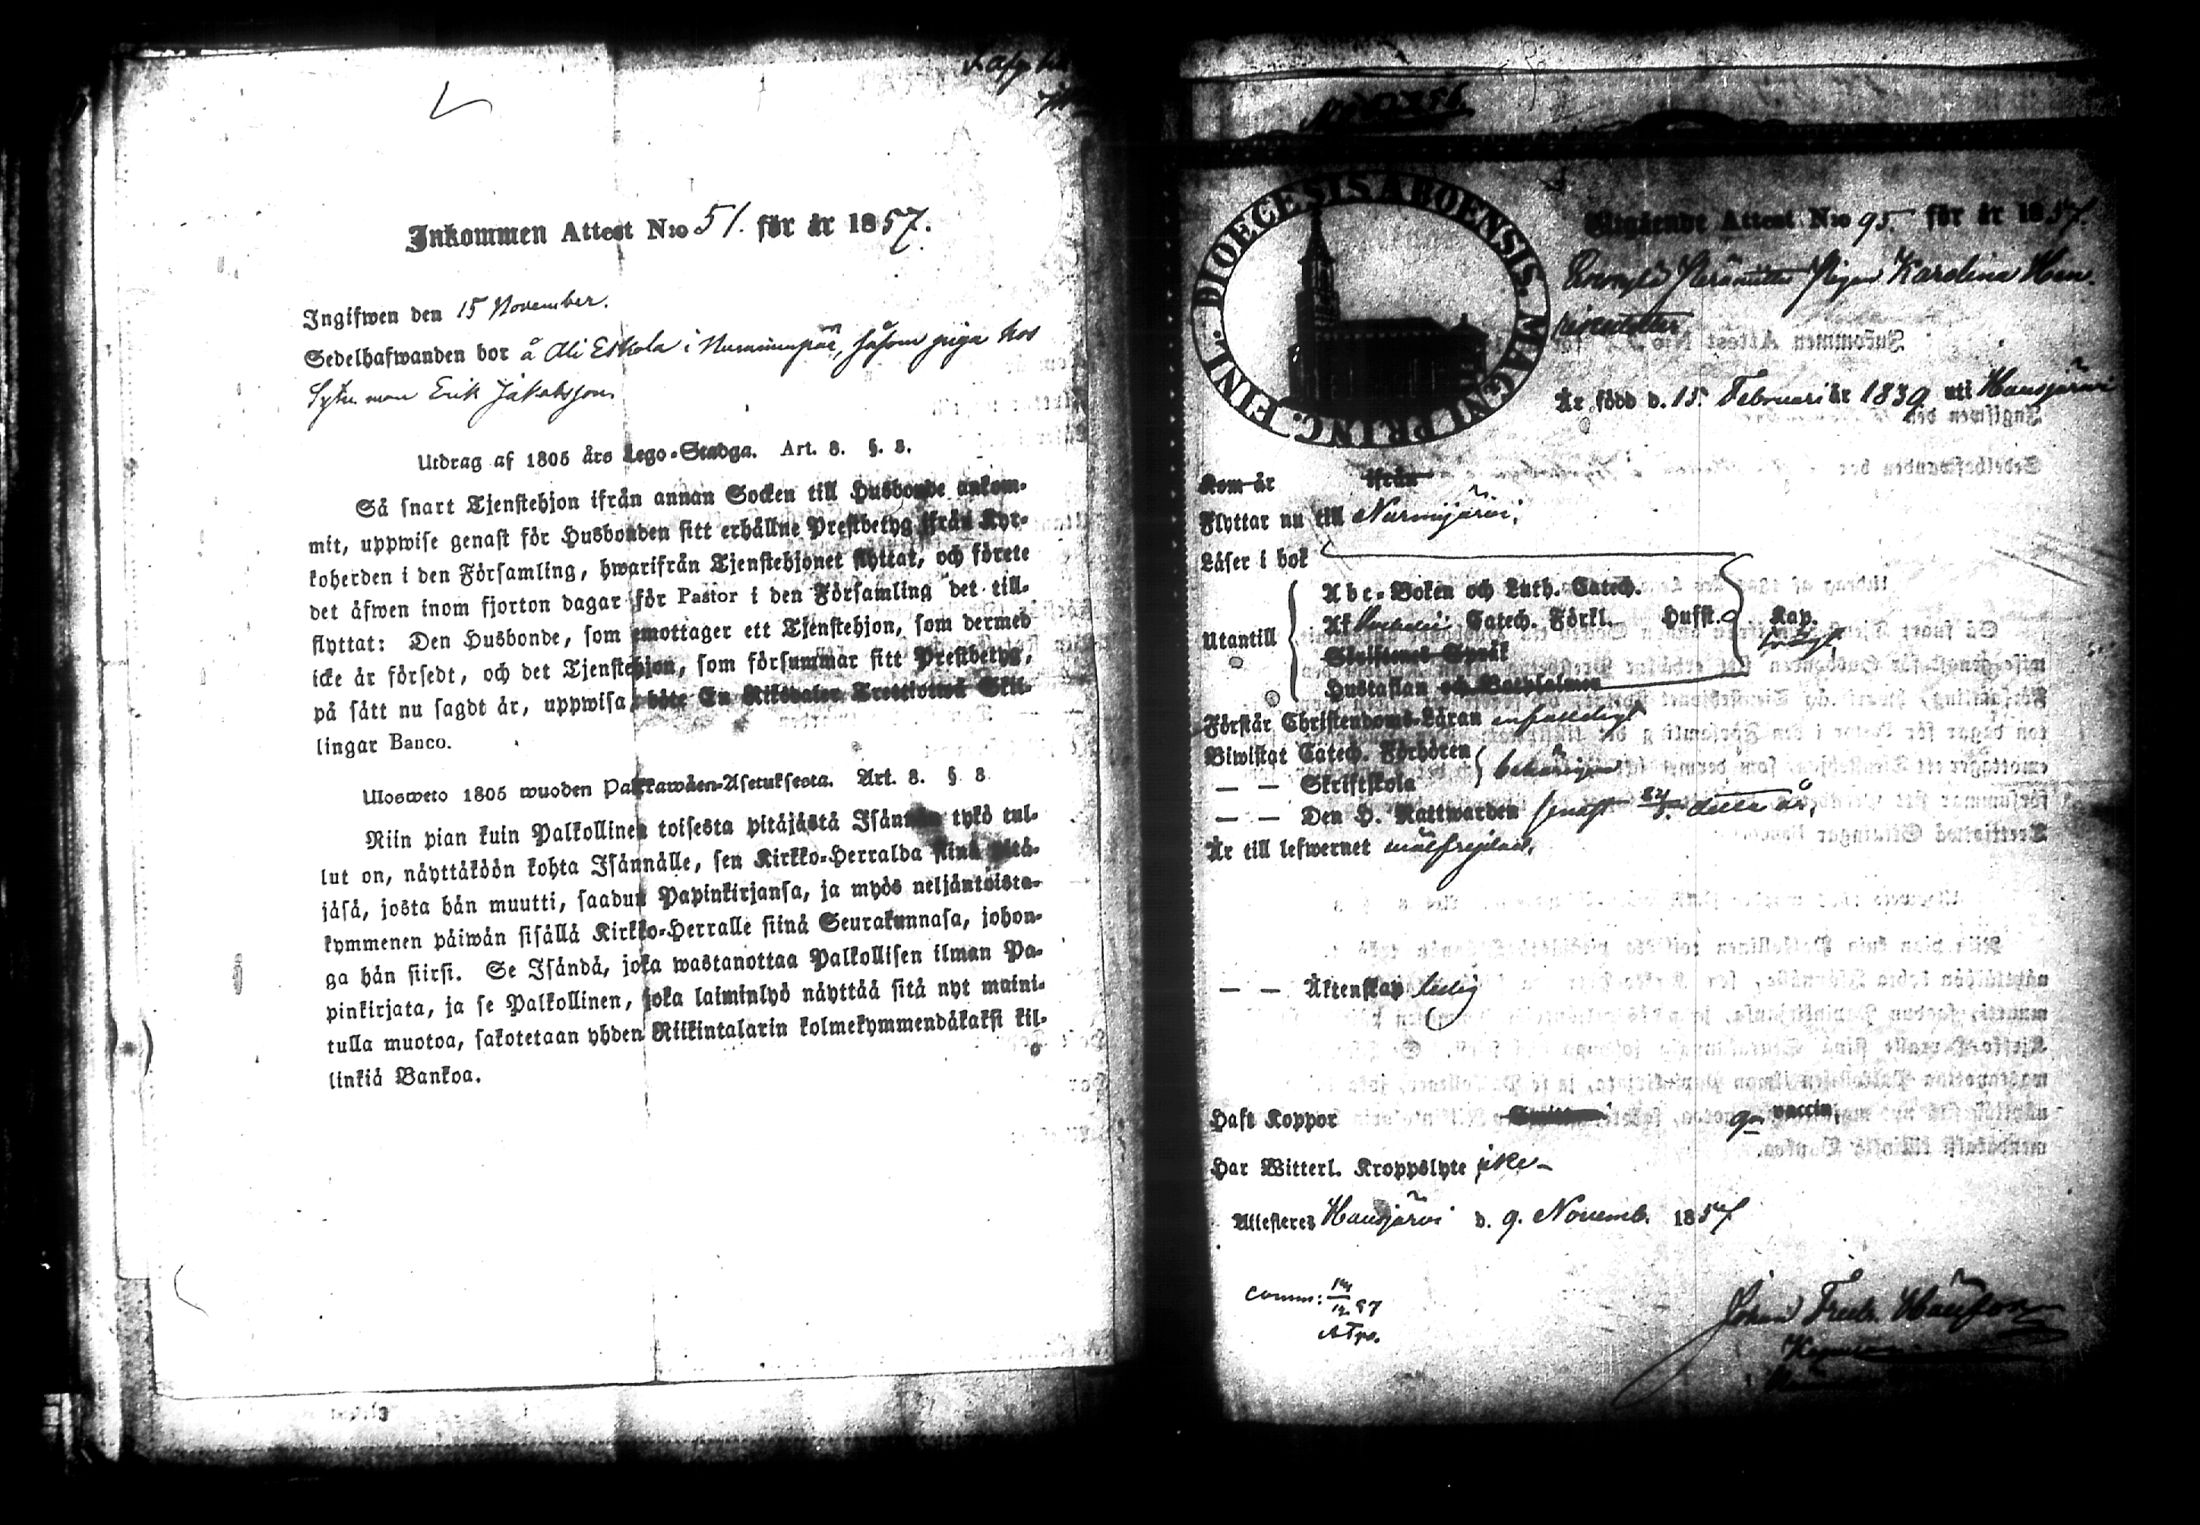 Inkommen Attest N:o 51. för år 1857.
Ingifwen den 15 November.
Sedelhafwanden bor å Ali Eskola i Nummenpää, såsom piga hos
Sytn. man Erik Jakobsson
Utdrag af 1805 års Lego-Stadga. Art. 8. §. 8.
Så snart Tjenstehjon ifrån annan Socken till Husbonde ankom-
mit, uppwise genast för Husbonden sitt erhållne Prestbetyg ifrån Kyr-
koherden i den Församling, hwarifrån Tjenstehjonet flyttat, och förete
det äfwen inom fjorton dagar för Pastor i den Församling det till-
flyttat: Den Husbonde, som emottager ett Tjenstehjon, som dermed
icke är försedt, och det Tjenstehjon, som försummar sitt Prestbetyg,
på sätt nu sagdt är, uppwisa, böte En Riksdaler Trettiotwå Skil-
lingar Banco.
Ulosweto 1805 wuoden Palkkawäen-Asetuksesta. Art. 8. § 8
Niin pian kuin Palkollinen toisesta pitäjästä Isännän tykö tul-
lut on, näyttäköön kohta Isännälle, sen Kirkko-Herralda siinä pitä-
jäsä, josta hän muutti, saadun Papinkirjansa, ja myös neljäntöista-
kymmenen päiwän sisällä Kirkko-Herralle siinä Seurakunnasa, johon-
ga hän siirsi. Se Isändä, joka wastanottaa Palkollisen ilman Pa-
pinkirjata, ja se Palkollinen, joka laiminlyö näyttää sitä nyt maini-
tulla muotoa, sakotetaan yhden Riikintalarin kolmekymmendäkaksi kil-
linkiä Bankoa.
DIOECESIS ABOENSIS. MAGNI PRINC. FINL.
Utgående Attest N:o 95. för år 1857.
Pigan Karolina Hen-
riksdotter
Är född d. 15 Februari år 1839 uti Hausjärvi
Kom år ifrån
Flyttar nu till Nurmijärvi,
Läser i bok
Abc-Boken och Luth. Catech.
Utantill Af Catech. Förkl. Hufst. Kap.
Skriftenes Språk
Hustaflan och Bothsalmen
Förstår Christendoms-Läran enfaldigt
Biwistat Catech. Förhören
— — Skriftskola behörigen
— — Den H. Nattwarden senast detta år,
Är till lefwernet wälfrejdad,
— — Äktenskap ledig
Haft Koppor gm vaccin,
Har Witterl. Kroppslyte icke
Attesteres Hausjärvi d. 9. Novemb. 1857
Comm:
Johan Fredr.